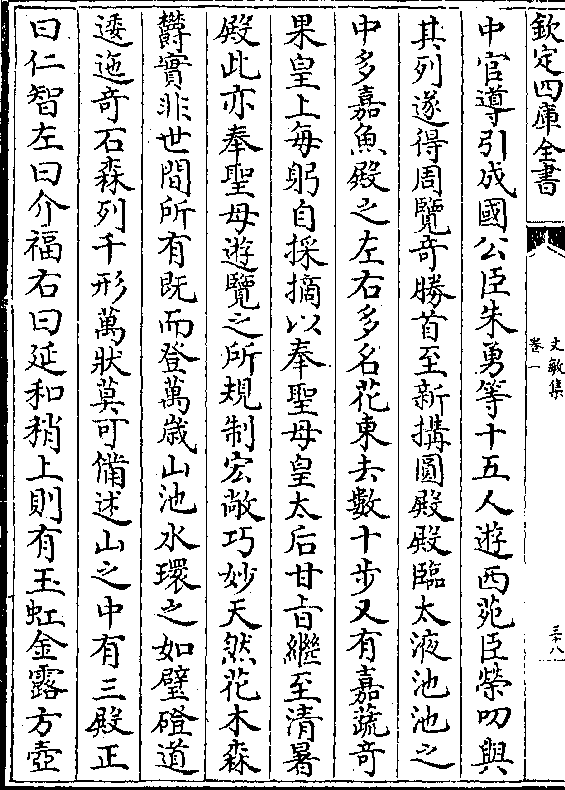 欽定四庫全書
文敏集
卷一
三十八
中官導引成國公臣朱勇等十五人遊西苑臣榮叨與
其列遂得周覽奇勝首至新搆圓殿殿臨太液池池之
中多嘉魚殿之左右多名花東去數十步又有嘉蔬奇
果皇上每躬自採摘以奉聖母皇太后甘旨繼至清暑
殿此亦奉聖母遊覽之所規制宏敞巧妙天然花木森
欝實非世間所有既而登萬歲山池水環之如璧磴道
逶迤奇石森列千形萬狀莫可備述山之中有三殿正
曰仁智左曰介福右曰延和稍上則有玉虹金露方壺